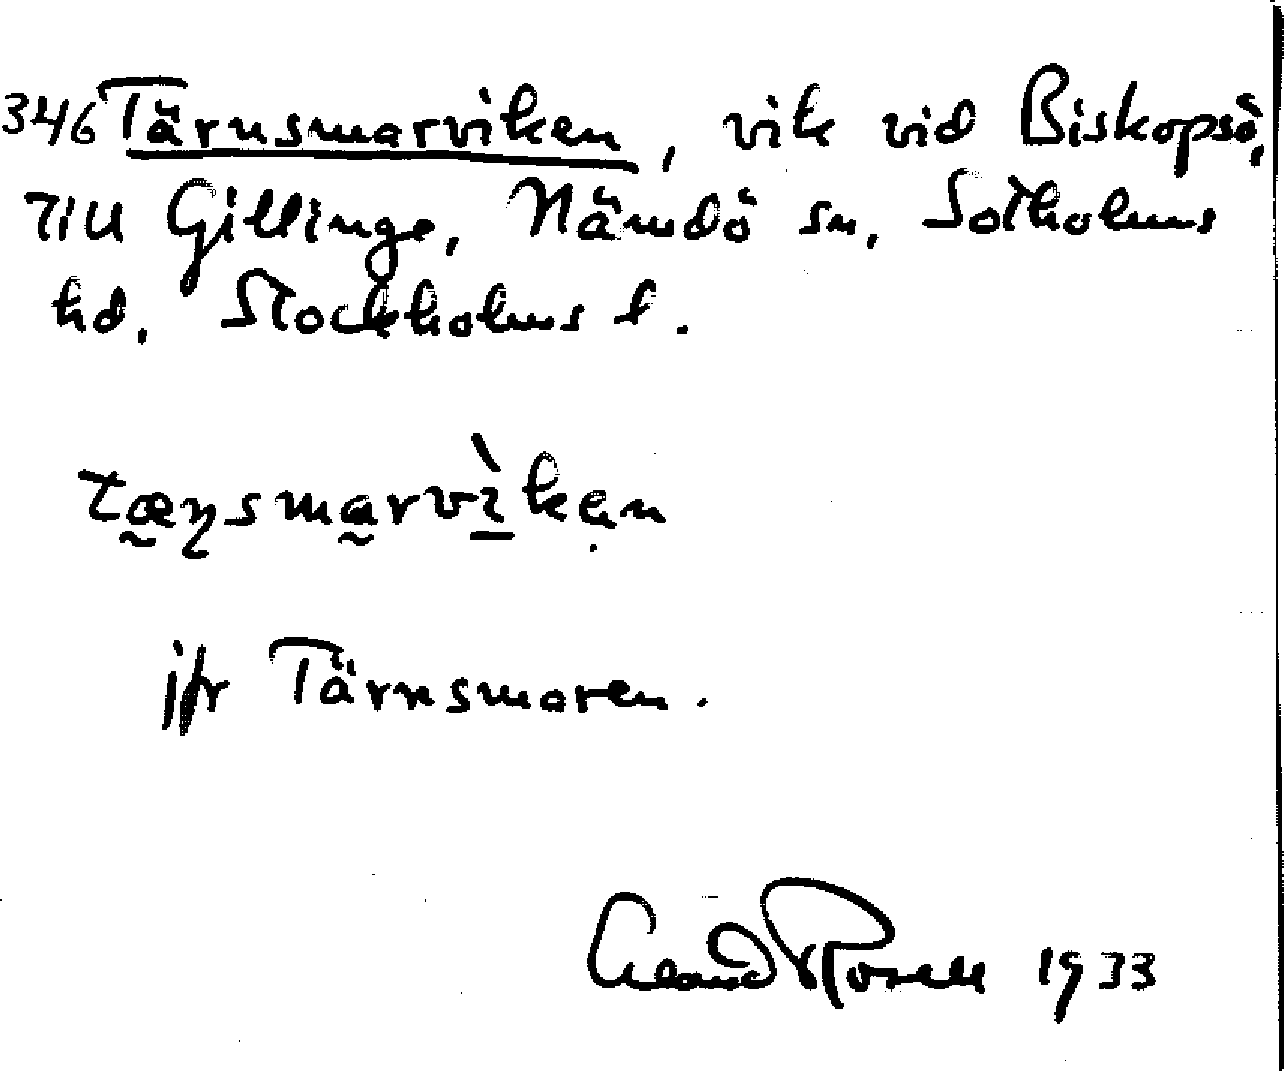 346 Tärnsmarviken, vik vid Biskopsö,
till Gillinge, Nämdö sn, Sotholms
hd. Stockholms l.
tæɳsmarvìkən
jfr Tärnsmaren.
Erland Rosell 1933